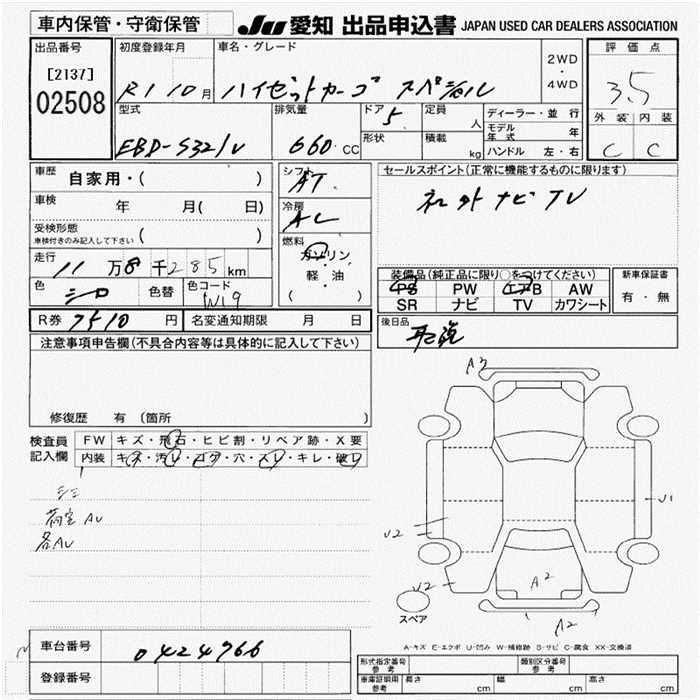 車内保管・守衛保管
JU 愛知 出品申込書 JAPAN USED CAR DEALERS ASSOCIATION
出品番号
[2137]
02508
初度登録年月
R1 10月
車名・グレード
ハイゼットカーゴ スペシャル
2WD
・
4WD
評価点
3.5
外装 内装
C C
型式
EBD-S321V
排気量
660 CC
ドア
5
形状
定員
人
積載
kg
ディーラー・並行
モデル年式 年
ハンドル 左・右
車歴
自家用・( )
車検
年 月( 日)
受検形態
車検付きのみ記入して下さい
( )
走行
11万8千285km
色
シロ
色替
色コード
W19
シフト
AT
冷房
AC
燃料
ガソリン
・
軽・油
( )
セールスポイント(正常に機能するものに限ります)
社外ナビTV
装備品(純正品に限り○をつけてください)
PS PW エアB AW
SR ナビ TV カワシート
新車保証書
有・無
R券 7510 円
名変通知期限 月 日
後日品
取説
注意事項申告欄(不具合内容等は具体的に記入して下さい)
修復歴 有(箇所 )
検査員
記入欄
FW キズ・飛石・ヒビ割・リペア跡・X要
内装 キズ・汚レ・コゲ・穴・スレ・キレ・破レ
荷室AU
各AU
A3
U1
U2
U2
A2
A2
スペア
A-キズ E-エクボ U-凹み W-補修跡 S-サビ C-腐食 XX-交換済
車台番号
0424766
登録番号
形式指定番号
参考
類別区分番号
参考
車庫証明用
参考
長さ cm
幅 cm
高さ cm